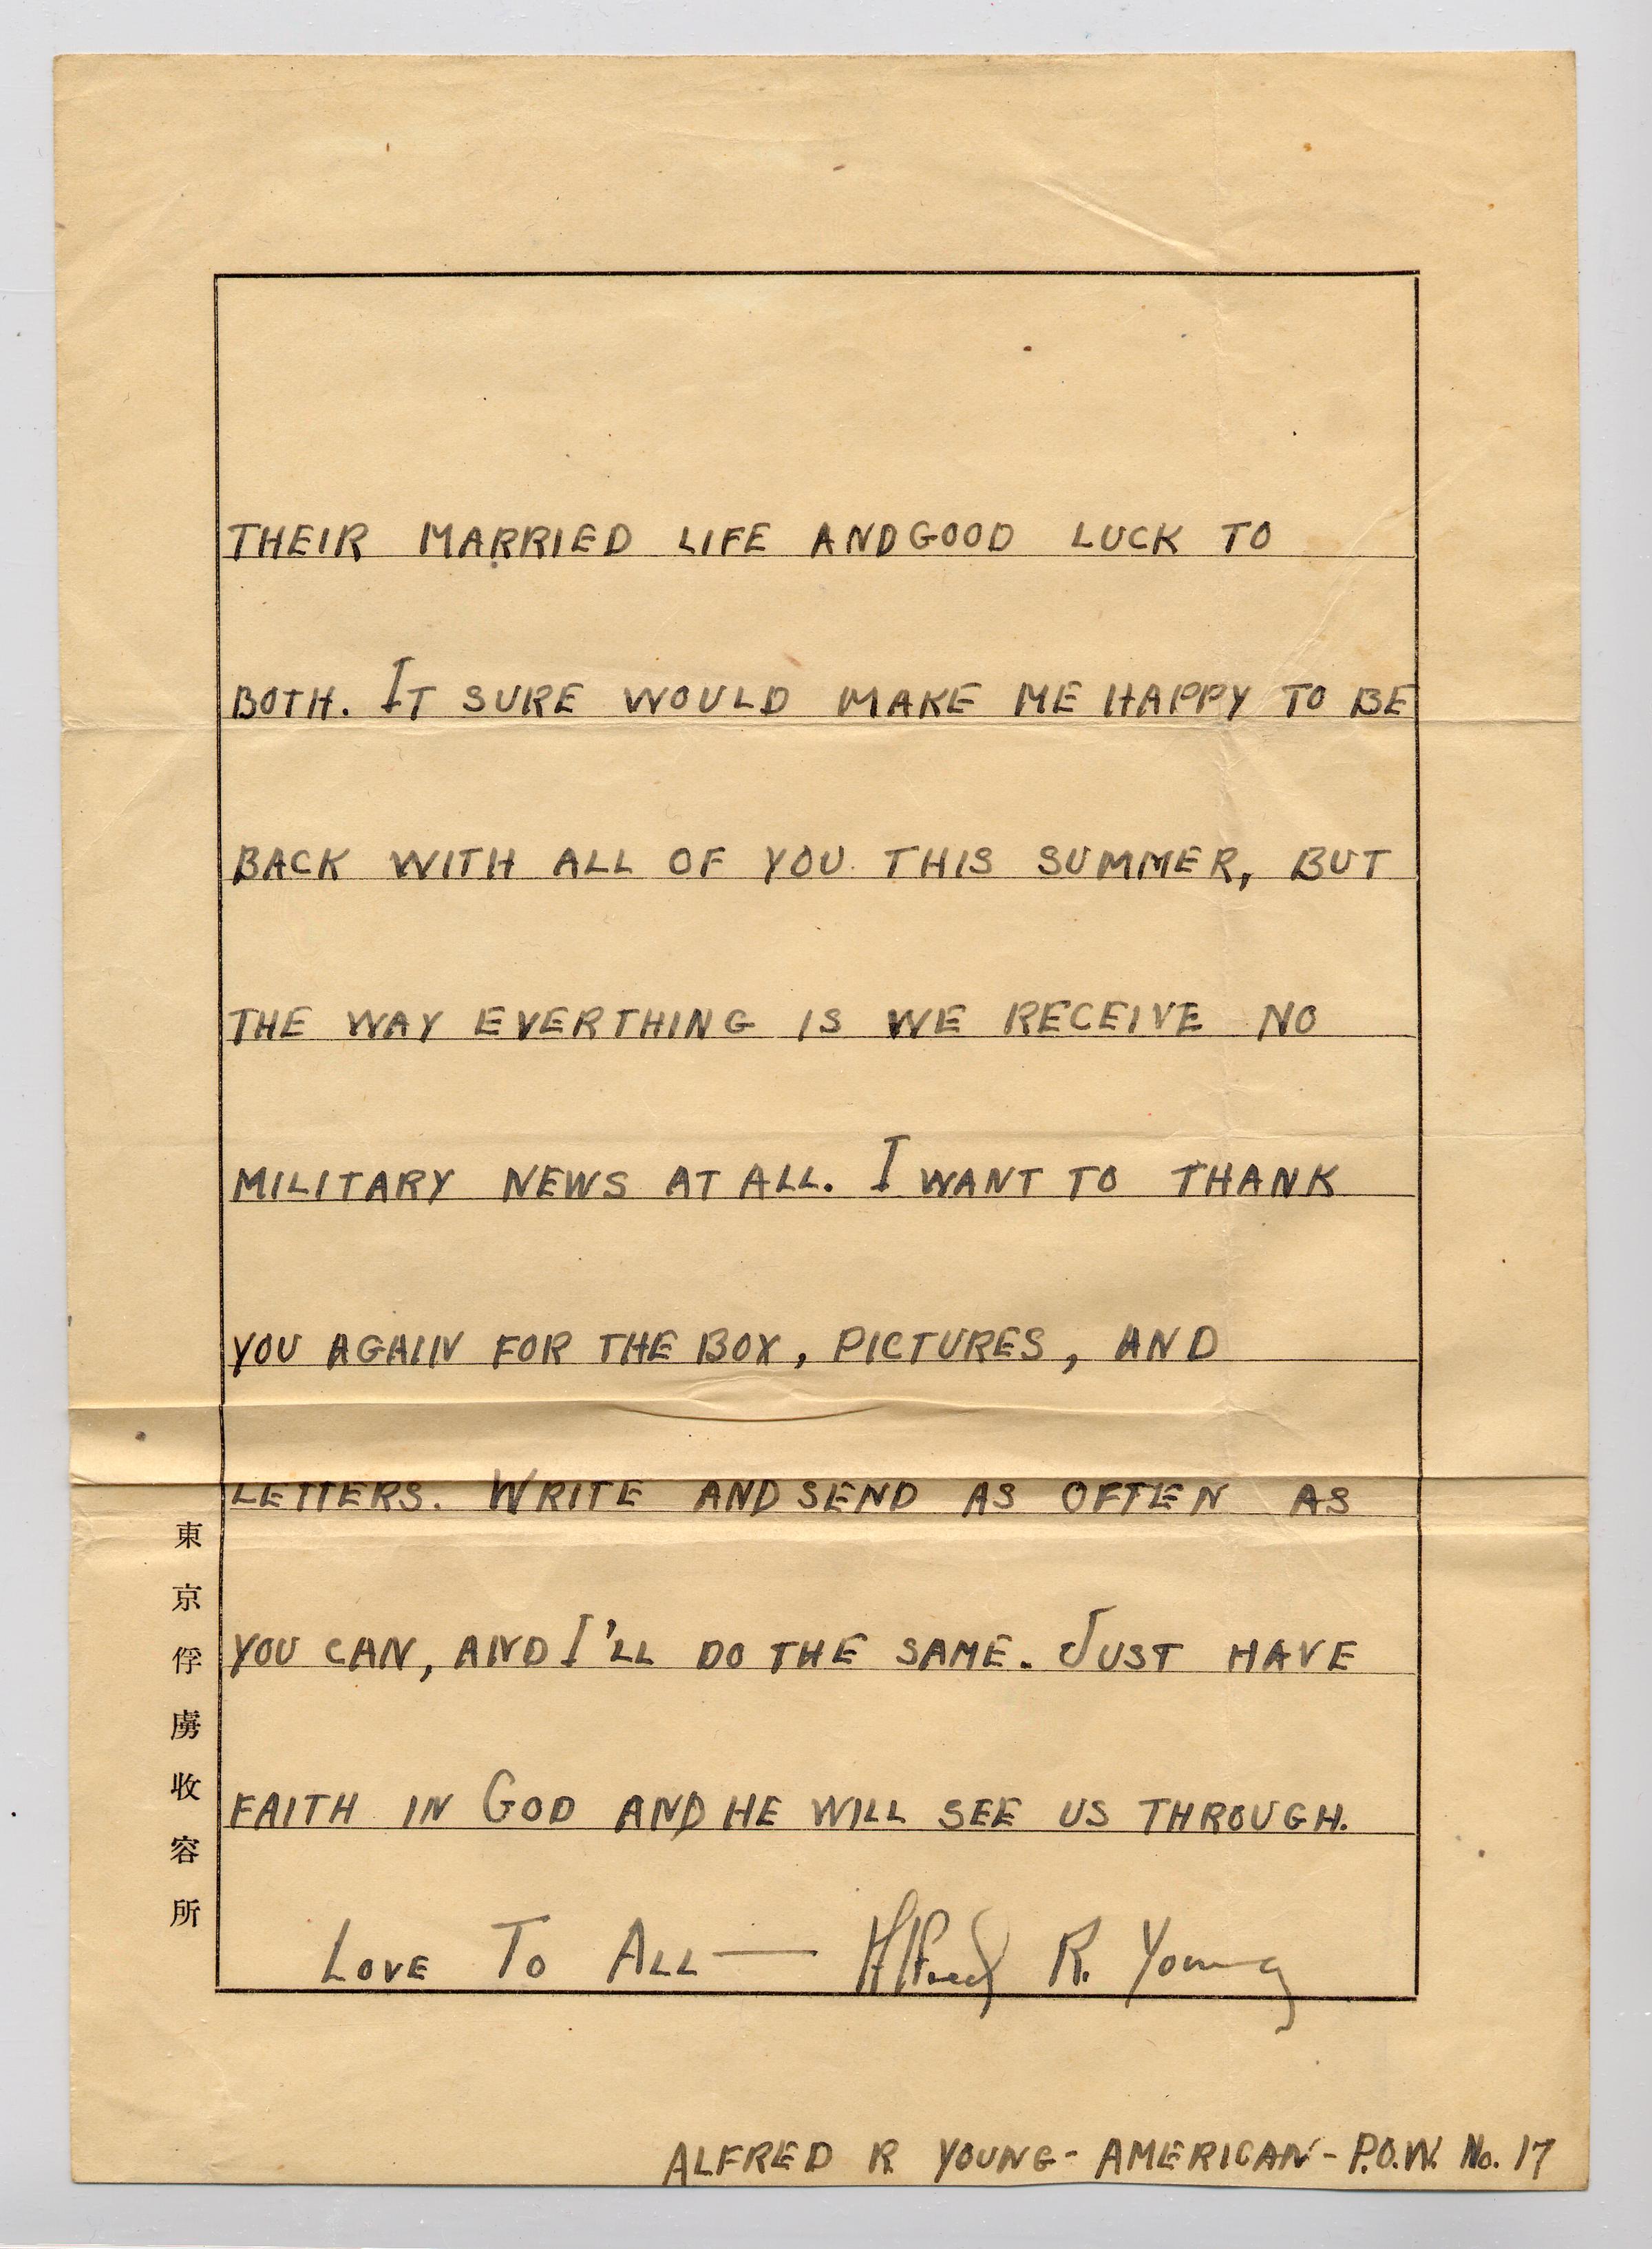 THEIR MARRIED LIFE AND GOOD LUCK TO
BOTH. IT SURE WOULD MAKE ME HAPPY TO BE
BACK WITH ALL OF YOU THIS SUMMER, BUT
THE WAY EVERTHING IS WE RECEIVE NO
MILITARY NEWS AT ALL. I WANT TO THANK
YOU AGAIN FOR THE BOX, PICTURES, AND
LETTERS. WRITE AND SEND AS OFTEN AS
YOU CAN, AND I'LL DO THE SAME. JUST HAVE
FAITH IN GOD AND HE WILL SEE US THROUGH.
LOVE TO ALL — Alfred R. Young
ALFRED R YOUNG - AMERICAN - P.O.W. No. 17
東京俘虜收容所